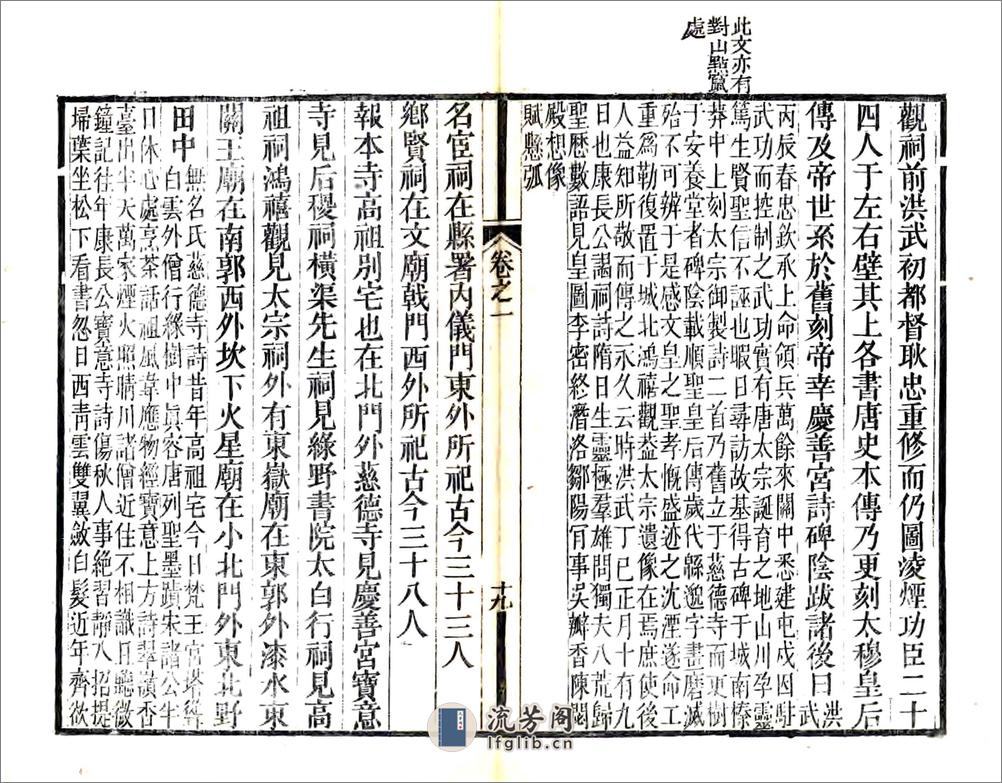 此文亦有
對山點竄
處
觀祠前洪武初都督耿忠重修而仍圖凌煙功臣二十
四人于左右壁其上各書唐史本傳乃更刻太穆皇后
傳及帝世系於舊刻帝幸慶善宮詩碑陰跋諸後曰洪武
丙辰春忠欽承上命領兵萬餘來關中悉建屯戍因駐
武功而控制之武功實有唐太宗誕育之地山川孕靈
篤生賢聖信不誣也暇日尋訪故基得古碑于城南榛
莽中上刻太宗御製詩二首乃舊立于慈德寺而更樹
于安養堂者碑陰載順聖皇后傳歲代緜邈字畫磨滅
殆不可辨于是感文皇之聖孝慨盛迹之沈湮遂命工
重爲勒復置于城北鴻禧觀葢太宗遺像在焉庶使後
人益知所敬而傳之永久云時洪武丁巳正月十有九
日也康長公謁祠詩隋日生靈極羣雄問獨夫八荒歸
聖歷數語見皇圖李密終潛洛鄒陽肎事吳瓣香陳閟
殿想像
賦懸弧
卷之一
十九
名宦祠在縣署内儀門東外所祀古今三十三人
鄉賢祠在文廟戟門西外所祀古今三十八人
報本寺高祖別宅也在北門外慈德寺見慶善宮寶意
寺見后稷祠橫渠先生祠見綠野書院太白行祠見高
祖祠鴻禧觀見太宗祠外有東嶽廟在東郭外漆水東
關王廟在南郭西外坎下火星廟在小北門外東北野
田中無名氏慈德寺詩昔年高祖宅今日梵王宮塔經
白雲外僧行綠樹中眞容唐列聖墨蹟宋諸公半
日休心處烹茶話祖風韋應物經寶意上方詩翠嶺香
臺出半天萬家煙火照晴川諸僧近住不相識且聽微
鐘記往年康長公寶意寺詩傷秋人事絶習靜八招提
掃葉坐松下看書忽日西靑雲雙翼斂白髮近年齊欲
流芳阁
lfglib.cn